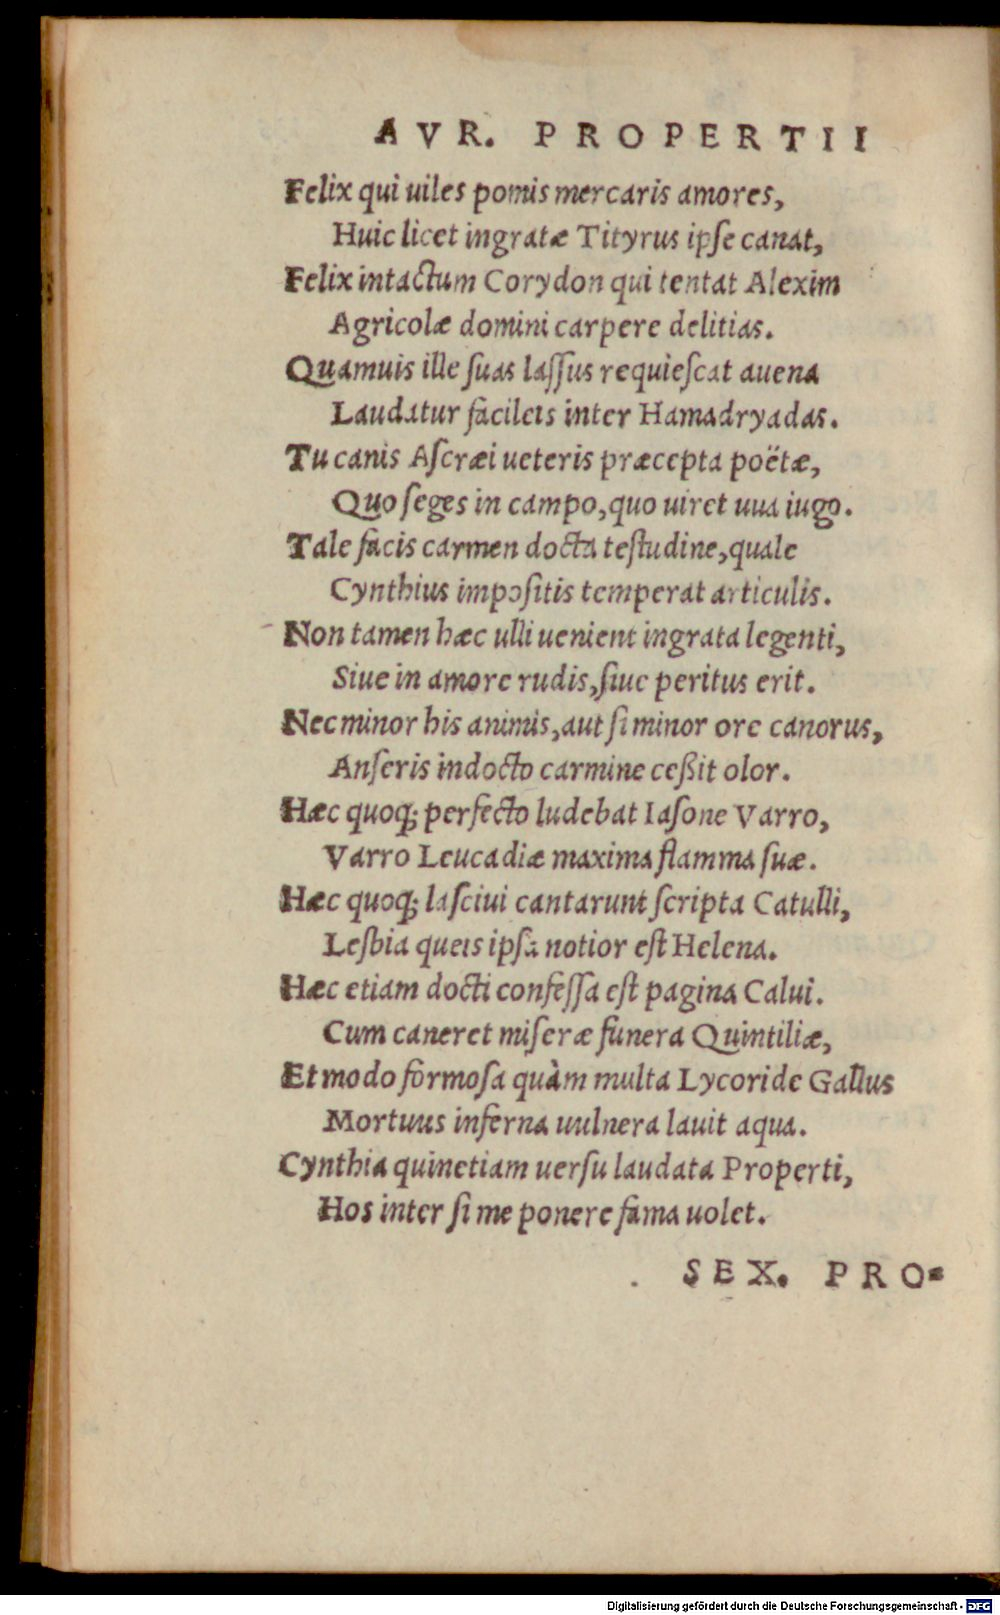 AVR. PROPERTII
Felix qui uiles pomis mercaris amores,
Huic licet ingratæ Tityrus ipſe canat,
Felix intactum Corydon qui tentat Alexim
Agricolæ domini carpere delitias.
Quamuis ille ſuas laſſus requieſcat auena
Laudatur facileis inter Hamadryadas.
Tu canis Aſcræi ueteris præcepta poëtæ,
Quo ſeges in campo, quo uiret uua iugo.
Tale facis carmen docta teſtudine, quale
Cynthius impoſitis temperat articulis.
Non tamen hæc ulli uenient ingrata legenti,
Siue in amore rudis, ſiue peritus erit.
Nec minor his animis, aut ſi minor ore canorus,
Anſeris indocto carmine ceßit olor.
Hæc quoq; perfecto ludebat Iaſone Varro,
Varro Leucadiæ maxima flamma ſuæ.
Hæc quoq; laſciui cantarunt ſcripta Catulli,
Lesbia queis ipſa notior eſt Helena.
Hæc etiam docti confeſſa eſt pagina Calui.
Cum caneret miſeræ funera Quintiliæ,
Et modo formoſa quàm multa Lycoride Gallus
Mortuus inferna uulnera lauit aqua.
Cynthia quinetiam uerſu laudata Properti,
Hos inter ſi me ponere fama uolet.
SEX. PRO=
Digitalisierung gefördert durch die Deutsche Forschungsgemeinschaft - DFG